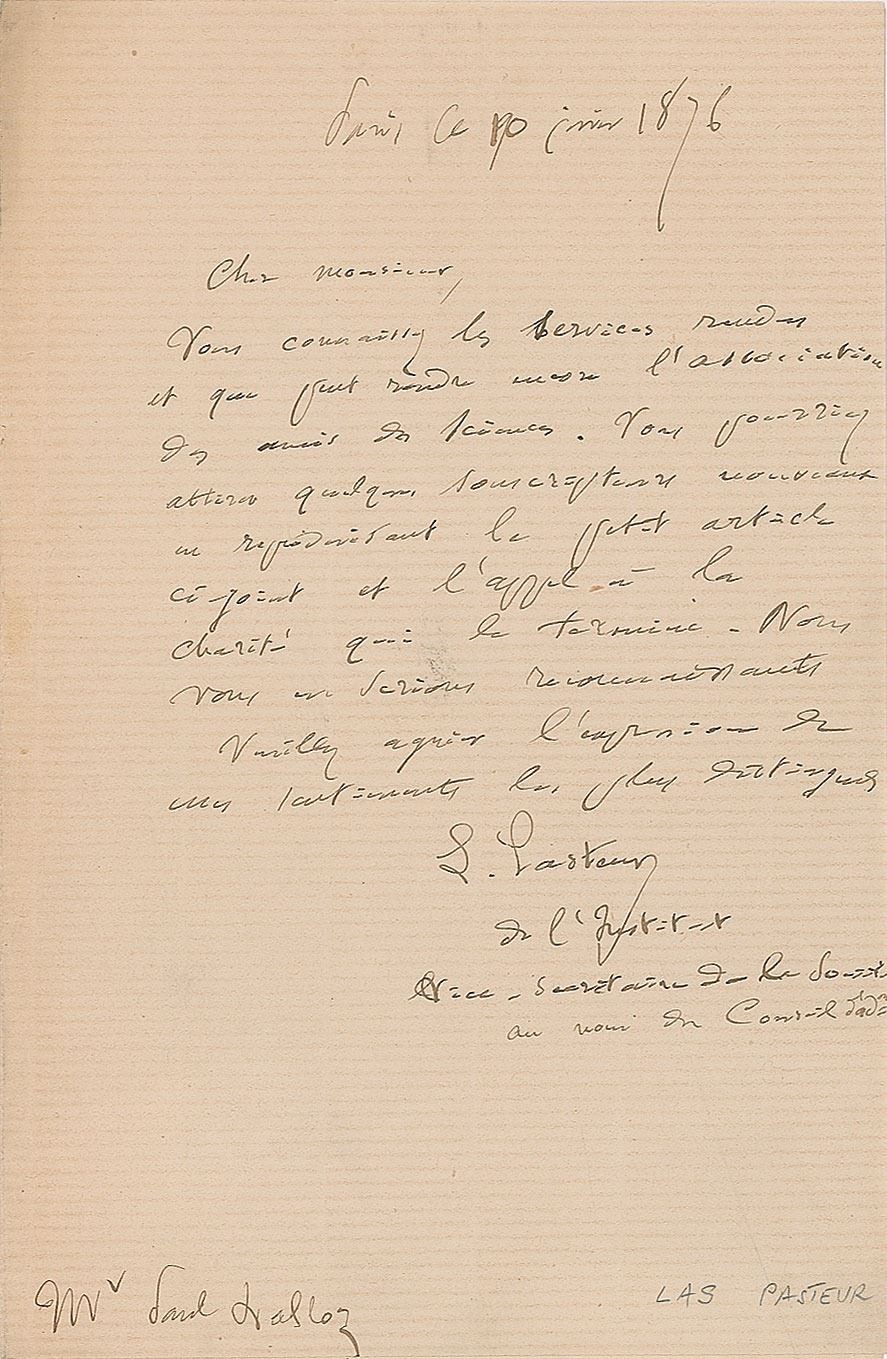 Paris ce 10 janvier 1876
Cher monsieur,
Vous connaissez les services rendus
et que peut rendre encore l'association
des amis des sciences. Vous pourriez
attirer quelques souscripteurs nouveaux
en reproduisant le petit article
ci-joint et l'appel à la
charité qui le termine. Nous
vous en serions reconnaissants
Veuillez agréer l'expression de
mes sentiments les plus distingués
L. Pasteur
de l'Institut
Vice-secrétaire de la Société
au nom du Conseil d'ad
Mr Paul Dalloz
LAS PASTEUR